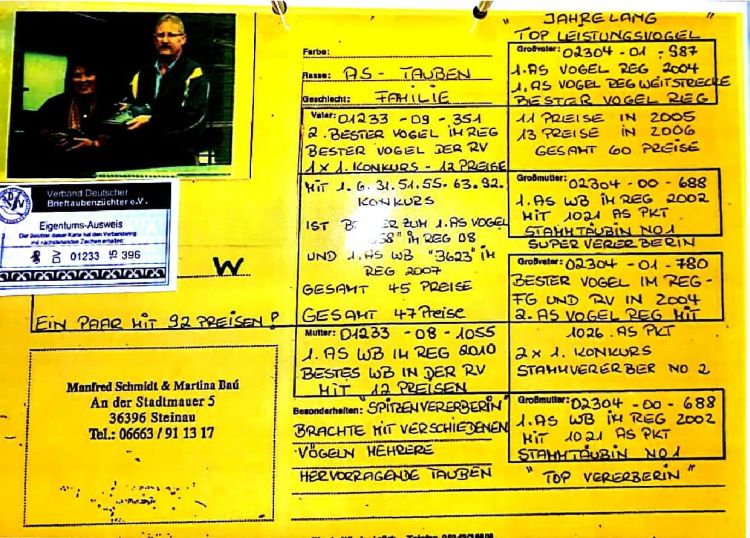 Verband Deutscher
Brieftaubenzüchter e.V.
Eigentums-Ausweis
01233 396
W
EIN PAAR MIT 92 PREISEN!
Manfred Schmidt & Martina Baú
An der Stadtmauer 5
36396 Steinau
Tel.: 06663 / 91 13 17
Farbe:
Rasse: AS - TAUBEN
Geschlecht: FAMILIE
Vater: 01233 - 09 - 351
2. BESTER VOGEL IM REG
BESTER VOGEL DER RV
1 x 1. KONKURS - 12 PREISE
MIT 1. 6. 31. 51. 55. 63. 92.
KONKURS
IST ZUM 1. AS VOGEL
IM REG 08
UND 1. AS WB "3623" IM
REG 2007
GESAMT 45 PREISE
GESAMT 47 Preise
Mutter: 01233 - 08 - 1055
1. AS WB IM REG 2010
BESTES WB IN DER RV
MIT 12 PREISEN
Besonderheiten: "SPITZENVERERBERIN"
BRACHTE MIT VERSCHIEDENEN
VÖGELN MEHRERE
HERVORRAGENDE TAUBEN
" JAHRELANG "
TOP LEISTUNGSVOGEL
Großvater: 02304 - 01 - 987
1. AS VOGEL REG 2004
1. AS VOGEL REG WEITSTRECKE
BESTER VOGEL REG
11 PREISE IN 2005
13 PREISE IN 2006
GESAMT 60 PREISE
Großmutter: 02304 - 00 - 688
1. AS WB IM REG 2002
MIT 1021 AS PKT
STAMMTÄUBIN NO 1
SUPERVERERBERIN
Großvater: 02304 - 01 - 780
BESTER VOGEL IM REG -
FG UND RV IN 2004
2. AS VOGEL REG MIT
1026. AS PKT
2 x 1. KONKURS
STAMMVERERBER NO 2
Großmutter: 02304 - 00 - 688
1. AS WB IM REG 2002
MIT 1021 AS PKT
STAMMTÄUBIN NO 1
"TOP VERERBERIN"